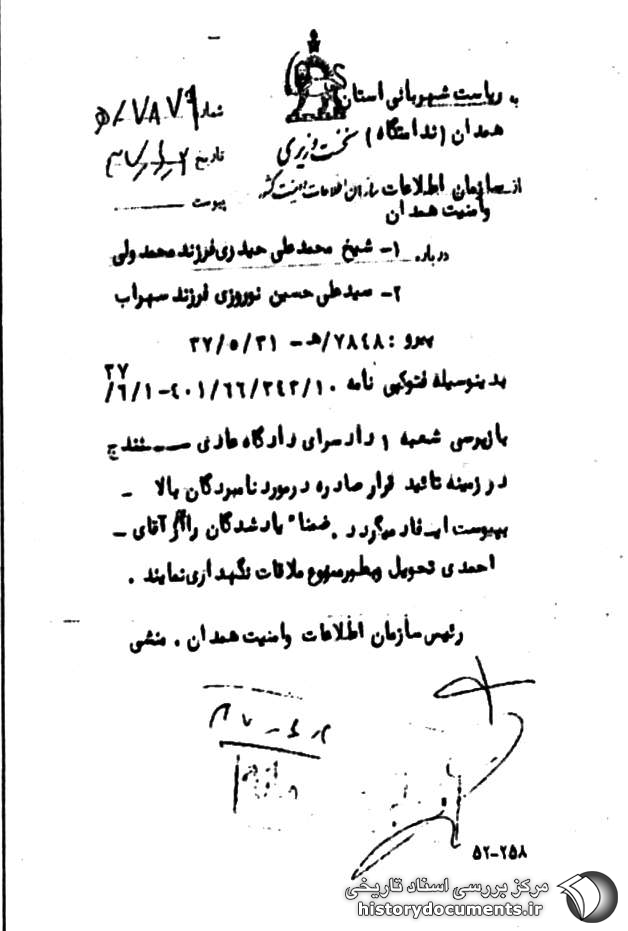 به ریاست شهربانی استان
همدان (ندامتگاه)
نخست وزیری
سازمان اطلاعات و امنیت کشور
از سازمان اطلاعات
وامنیت همدان
شماره ۷۸۷۹/ﻫ
تاریخ
پیوست
درباره ۱- شیخ محمدعلی حیدری فرزند محمدولی
۲- سیدعلی حسین نوروزی فرزند سهراب
پیرو : ۷۸۴۸/ﻫ - ۳۷/۵/۳۱
بدینوسیله فتوکپی نامه ۴۰۱/۶۶/۲۴۳/۱۰-۶/۱/
۳۷
بازپرسی شعبه ۱ دادسرای دادگاه عادی سنندج
در زمینه تائید قرار صادره درمورد نامبردگان بالا -
بپیوست ایفاد میگردد . ضمنا" یادشدگان را از آقای -
احمدی تحویل وبطورممنوع ملاقات نگهداری نمایند .
رئیس سازمان اطلاعات وامنیت همدان . منشی
۵۲-۲۵۸
مرکز بررسی اسناد تاریخی
historydocuments.ir